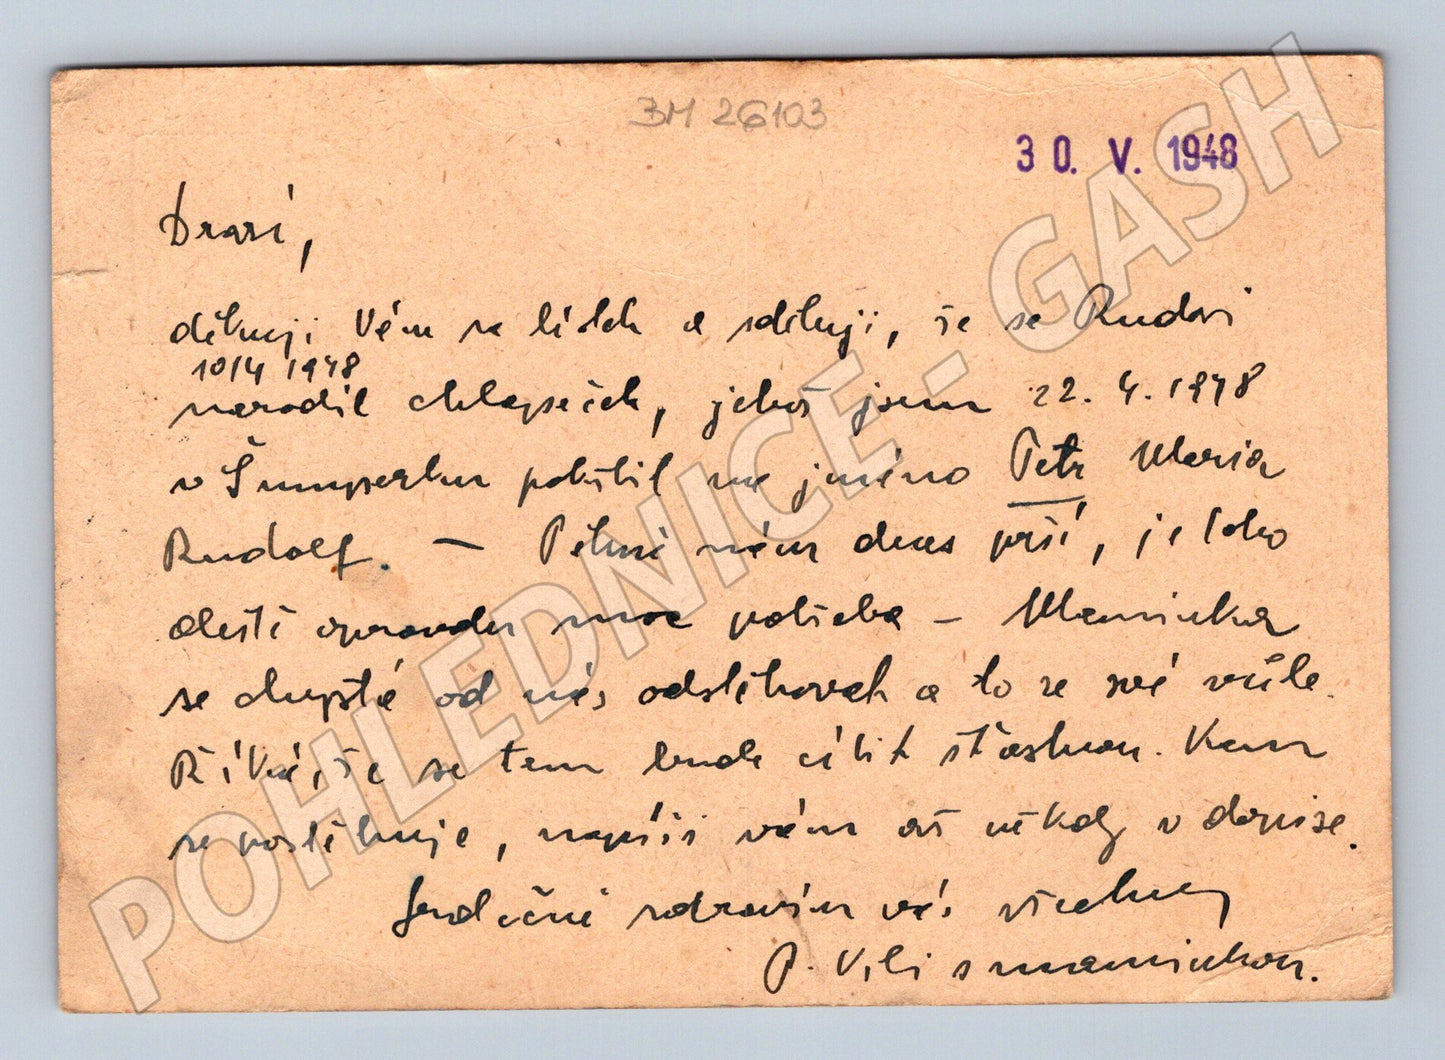 BM 26103
30. V. 1948
Drazí,
děkuji Vám za lístek a sděluji, že se Rudovi
10/4 1948
narodil chlapeček, jehož jsem 22. 4. 1948
v Šumperku pokřtil na jméno Petr Maria
Rudolf. — Pěkně nám dnes prší, je toho
deště opravdu moc potřeba – Maminka
se chystá od nás odstěhovat a to ze své vůle.
Říká, že se tam bude cítit šťastnou. Kam
se postěhuje, napíši vám až někdy v dopise.
Srdečně zdravím vás všechny
P. Vili s maminkou.
POHLEDNICE - GASH